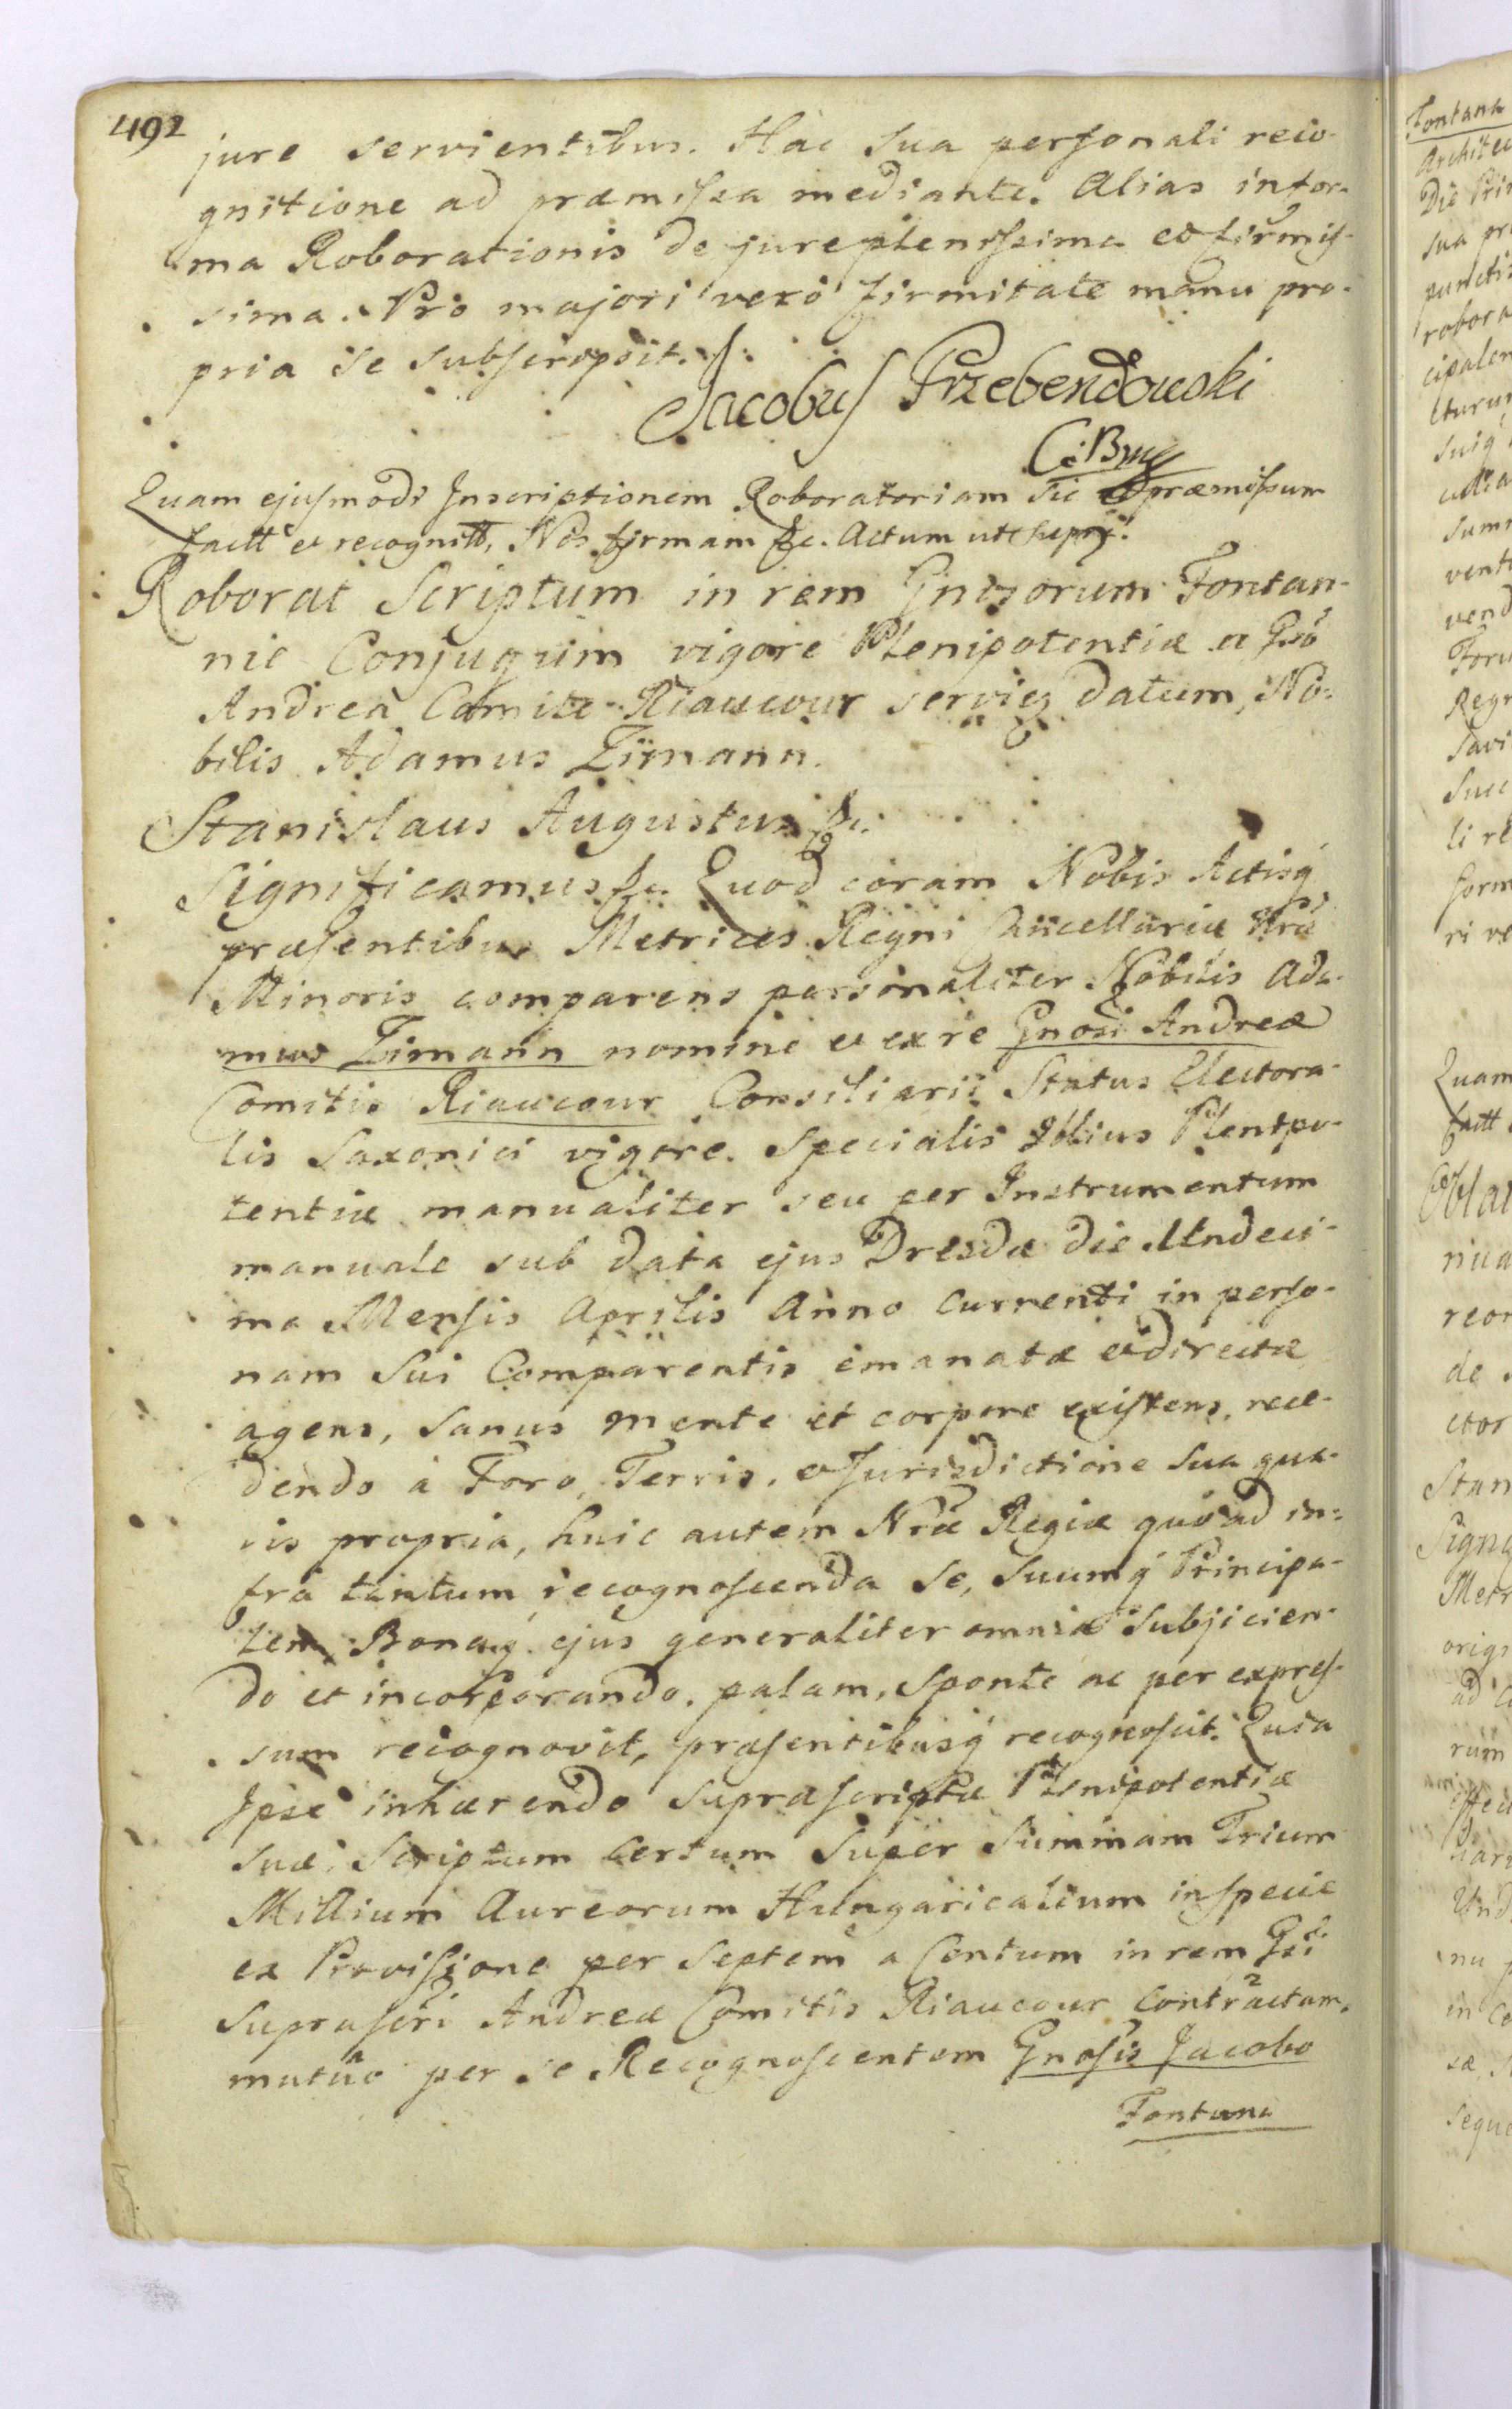 492
jure servientibus. Hac sua personali reco-
gnitione ad præmissa mediante. Alias in for-
ma Roborationis de jure plenissima et firmis-
sima. Pro majori vero firmitate manu pro-
pria se subscripsit.
Jacobus Przebendowski
Quam ejusmodi Inscriptionem Roboratoriam sic præmissum
factt et recognitt, Nos firmam &c. Actum ut supra.
Roborat Scriptum in rem Gnosorum Fontan-
nie Conjugum vigore Plenipotentiæ a Gso
Andrea Comite Riaucour serviey datum, No-
bilis Adamus Zimann.
Stanislaus Augustus &c.
Significamus &c. Quod coram Nobis Actisq
præsentibus Metrices Regni Cancellariæ Nræ
Minoris comparens personaliter Nobilis Ada-
mus Zimann nomine et ex re Gnosi Andreæ
Comitis Riaucour Consiliarii Status Electora-
lis Saxonici vigore specialis Illius Plenipo-
tentiæ manualiter seu per Instrumentum
manuale sub data ejus Dresdæ die Undeci-
ma Mensis Aprilis Anno Currenti in perso-
nam sui Comparentis emanatæ et directæ
agens, sanus mente et corpore existens, rece-
dendo a Foro, Terris, et Jurisdictione sua qua-
vis propria, huic autem Nræ Regiæ quo ad in-
fra tantum recognoscenda se, suumq Principa-
lem, Bonaq ejus generaliter omnia subjicien-
do et incorporando, palam, sponte ac per expres-
sum recognovit, præsentibusq recognoscit. Quia
Ipse inhærendo supræscriptæ Plenipotentiæ
suæ, Scriptum Certum super Summam Trium
Millium Aureorum Hungaricalium in specie
ex Provisione per septem a Centum in rem Gsi
suprascri Andreæ Comitis Riaucour Contractam,
mutuo per se Recognoscentem Gnosis Jacobo
Fontana

Fontana
Die
sua
robora
cipalem
vent
Regn
Succ
form
Quam
factt
de
Stan
Metr
rum
nu
in